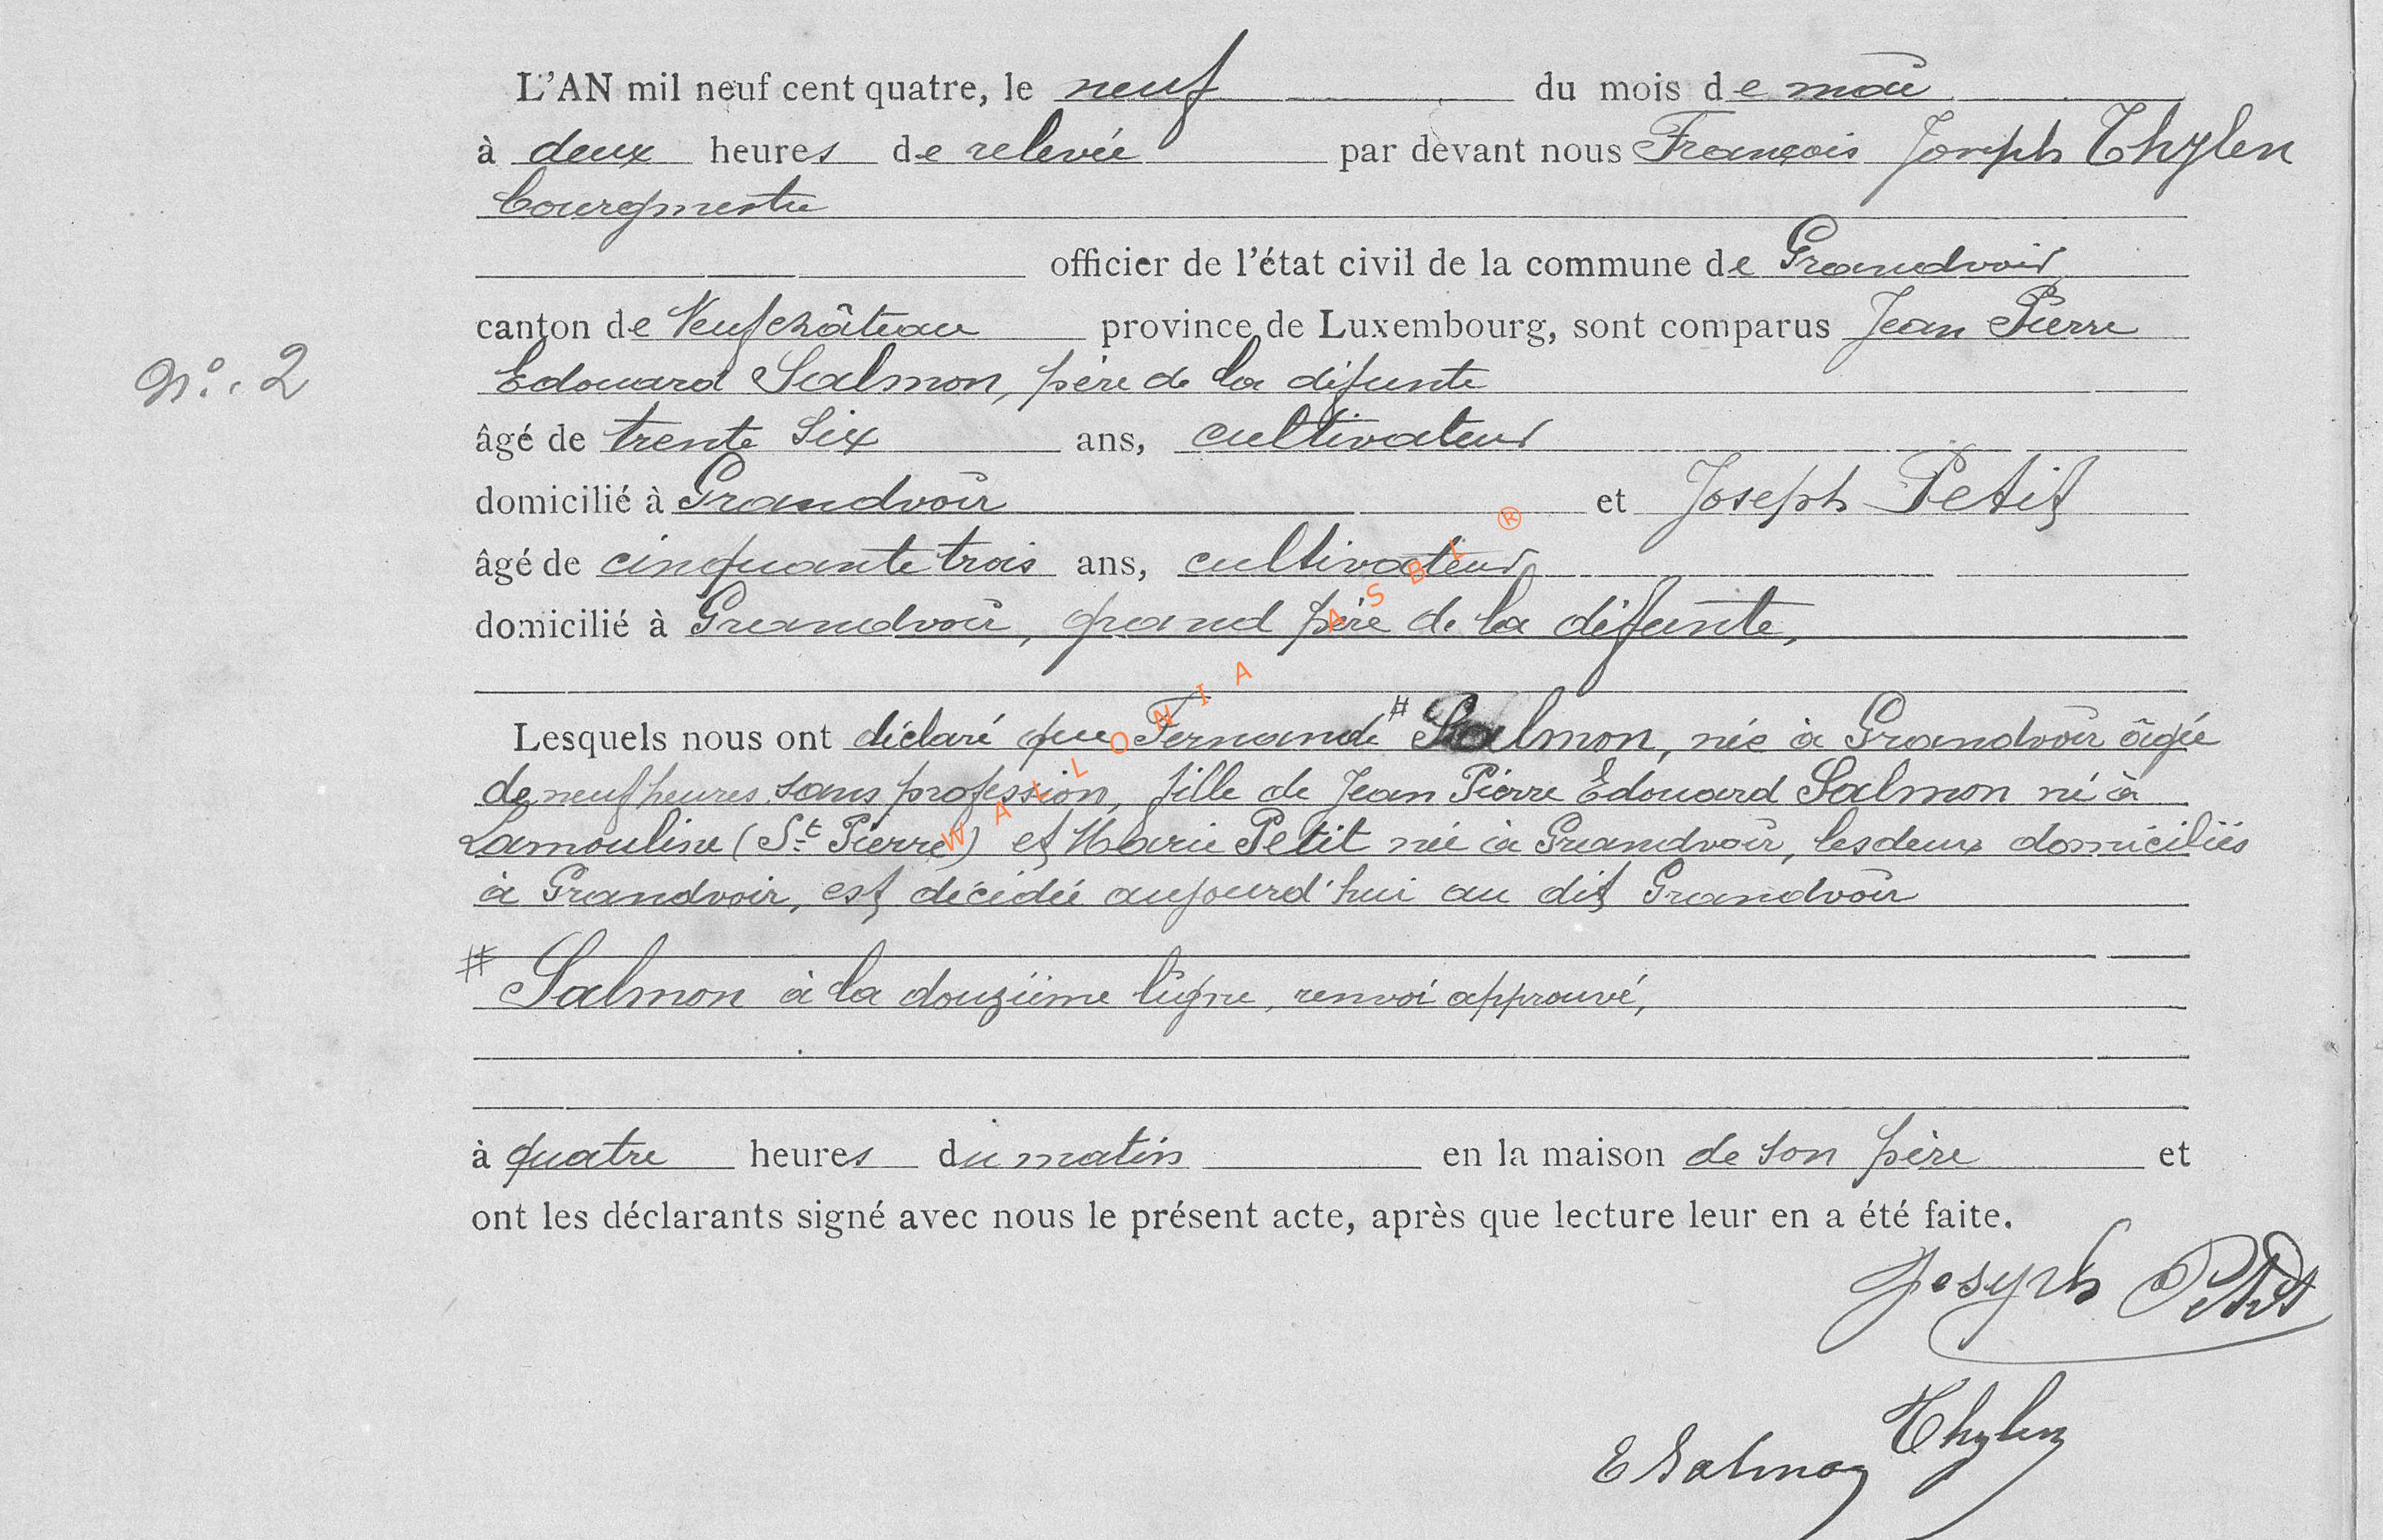 L'AN mil neuf cent quatre, le neuf du mois de mai
à deux heures de relevée par devant nous François Joseph Thylen
bourgmestre
officier de l'état civil de la commune de Grandvoir
canton de Neufchâteau province de Luxembourg, sont comparus Jean Pierre
N°. 2
Edouard Salmon, père de la défunte
âgé de trente six ans, cultivateur
domicilié à Grandvoir et Joseph Petit
âgé de cinquante trois ans, cultivateur
domicilié à Grandvoir, grand père de la défunte,
Lesquels nous ont déclaré que Fernande # Salmon, née à Grandvoir âgée
de neuf heures sans profession, fille de Jean Pierre Edouard Salmon né à
Lamouline (St Pierre) et Marie Petit née à Grandvoir, les deux domiciliés
à Grandvoir, est décédée aujourd'hui au dit Grandvoir
# Salmon à la douzième ligne, renvoi approuvé,
à quatre heures du matin en la maison de son père et
ont les déclarants signé avec nous le présent acte, après que lecture leur en a été faite.
Joseph Petit
Thylen
E Salmon
WALLONIA ASBL ®